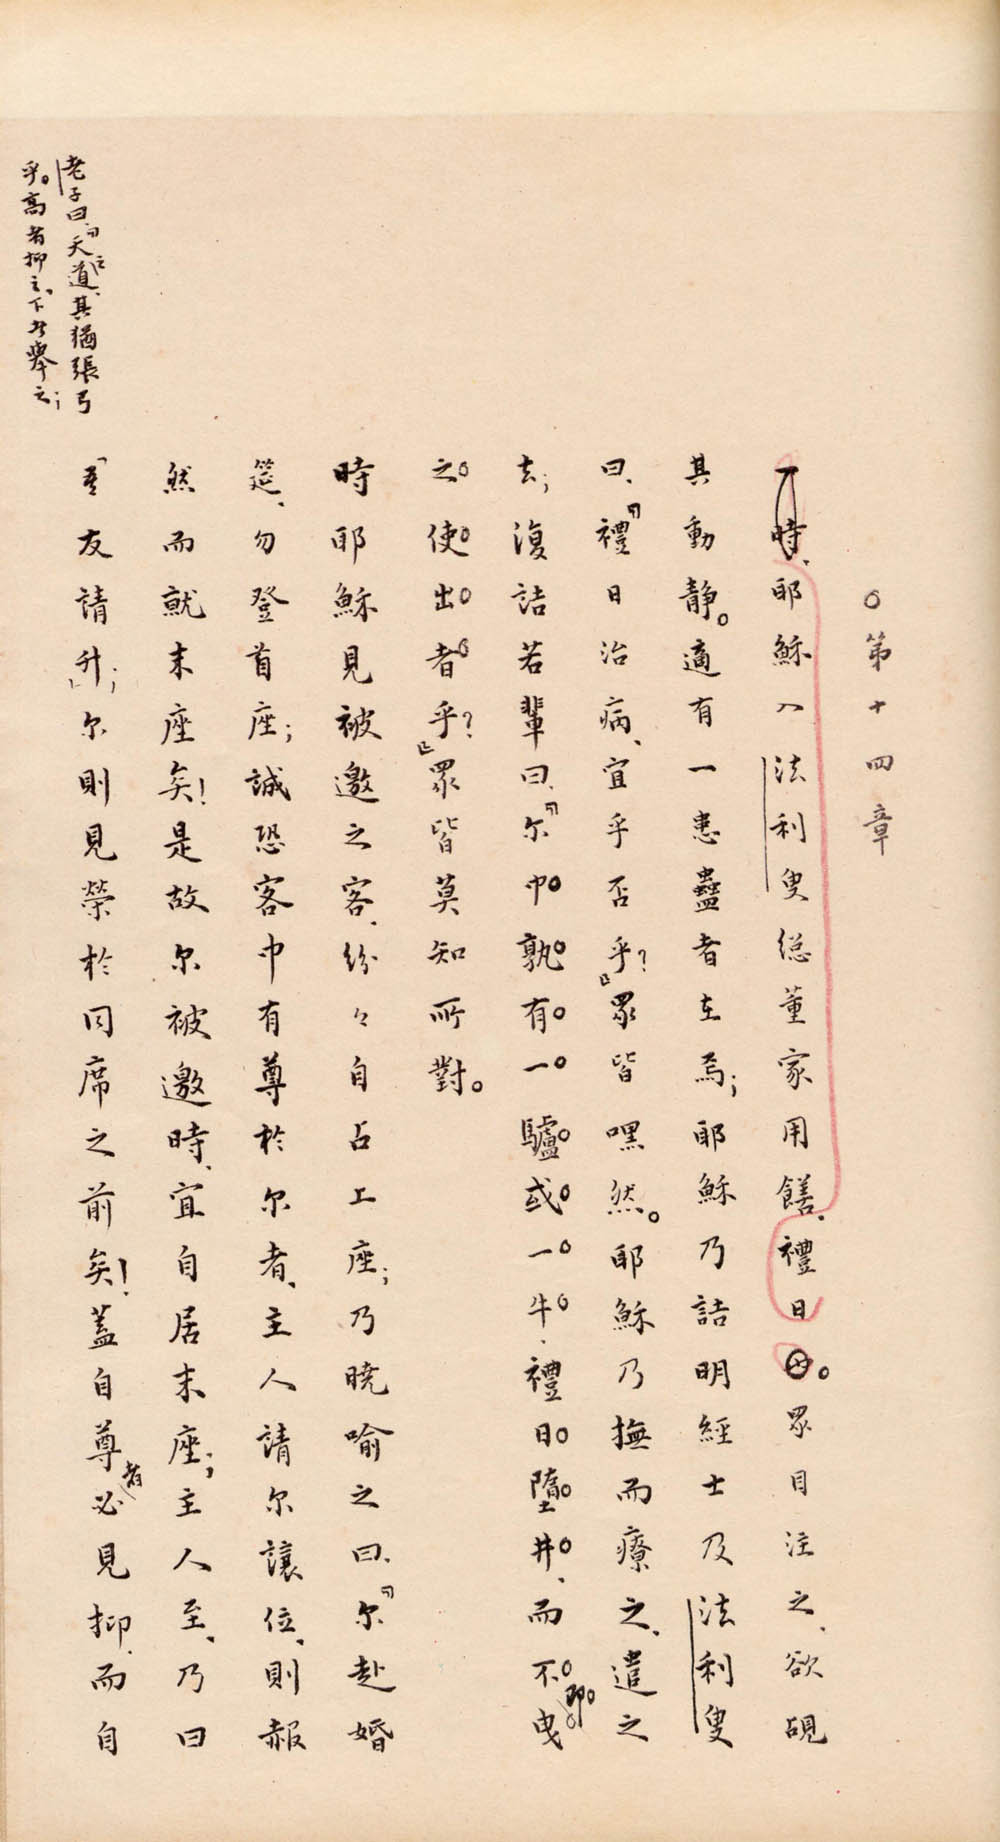 ○第十四章
一時、耶穌入法利叟總董家用饍、禮日㊉。眾目注之、欲覘
其動靜。適有一患蠱者在焉；耶穌乃詰明經士及法利叟
曰、『禮日治病、宜乎否乎？』眾皆嘿然。耶穌乃撫而療之、遣之
去；復詰若輩曰、『尔中孰有一驢或一牛、禮日墮井、而不即曳
之使出者乎？』眾皆莫知所對。
時耶穌見被邀之客、紛々自占上座；乃曉喻之曰、『尔赴婚
筵、勿登首座；誠恐客中有尊於尔者、主人請尔讓位、則赧
然而就末座矣！是故尔被邀時、宜自居末座；主人至、乃曰
「吾友請升」；尔則見榮於同席之前矣！蓋自尊者必見抑、而自
老子曰、『天之道、其猶張弓
乎。高者抑之、下者舉之；